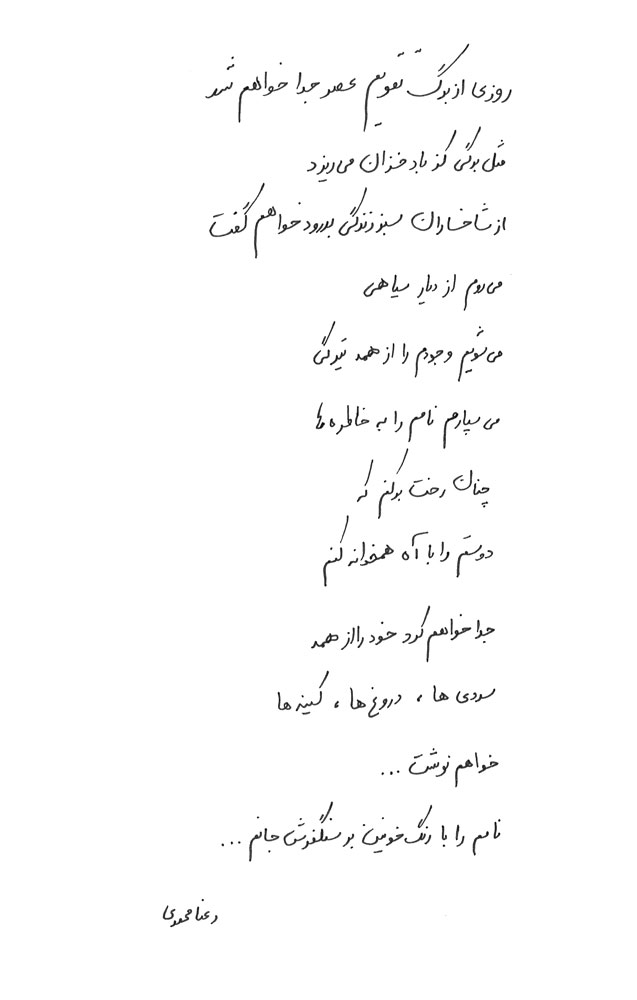 روزی از برگ تقویم عصر جدا خواهم شد
مثل برگی کز باد خزان می‌ریزد
از شاخساران سبز زندگی بدرود خواهم گفت
می‌روم از دیار سیاهی
می‌شویم وجودم را از همه تیرگی
می‌سپارم نامم را به خاطره‌ها
چنان رخت برکنم که
دوستم را با آه همخوانه کنم
جدا خواهم کرد خود را از همه
سردی ها ، دروغ ها ، کینه ها
خواهم نوشت ...
نامم را با رنگ خونین بر سنگفرش جانم ...
رعنا محمودی